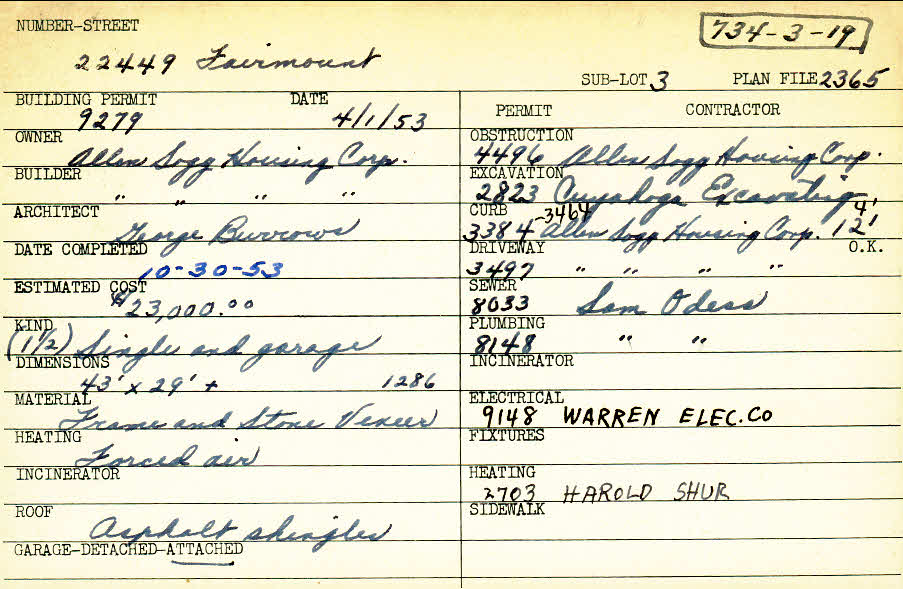 NUMBER-STREET
734-3-19
22449 Fairmount
SUB-LOT 3 PLAN FILE 2365
BUILDING PERMIT DATE
9279 4/1/53
OWNER
Allen Sogg Housing Corp.
BUILDER
" " " "
ARCHITECT
George Burrows
DATE COMPLETED
10-30-53
ESTIMATED COST
$23,000.00
KIND
(1 1/2) Single and garage
DIMENSIONS
43' x 29' + 1286
MATERIAL
Frame and Stone Veneer
HEATING
Forced air
INCINERATOR
ROOF
Asphalt shingles
GARAGE-DETACHED-ATTACHED
PERMIT CONTRACTOR
OBSTRUCTION
4496 Allen Sogg Housing Corp.
EXCAVATION
2823 Cuyahoga Excavating
CURB
3384-3464 Allen Sogg Housing Corp. 12' 4'
DRIVEWAY O.K.
3497 " " " "
SEWER
8033 Sam Odess
PLUMBING
8148 " "
INCINERATOR
ELECTRICAL
9148 WARREN ELEC.CO
FIXTURES
HEATING
2703 HAROLD SHUR
SIDEWALK